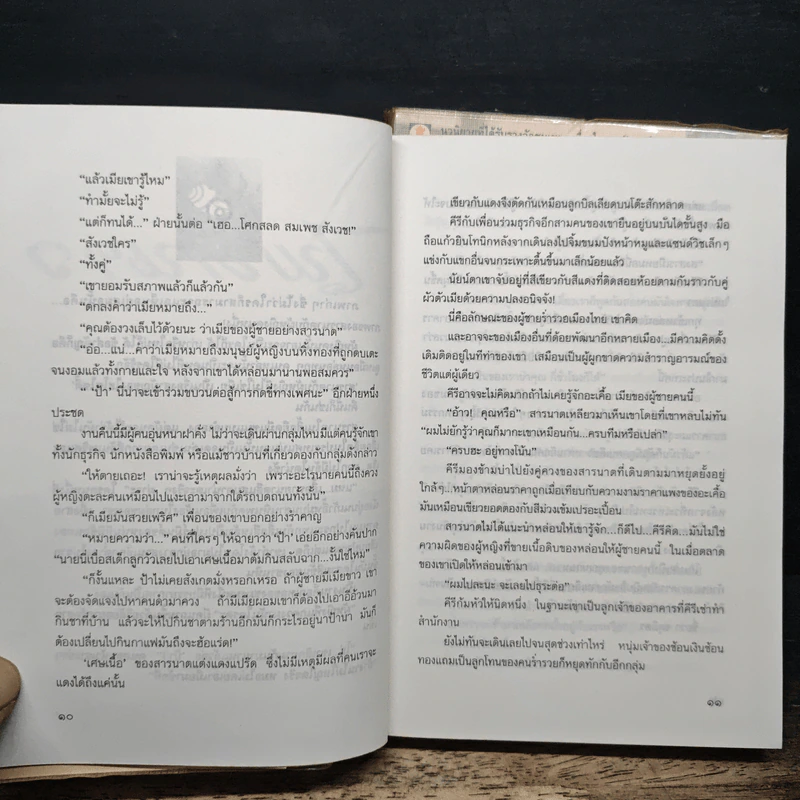 “แล้วเมียเขารู้ไหม”
“ทำมั้ยจะไม่รู้”
“แต่ก็ทนได้...” ฝ่ายนั้นต่อ “เฮอ...โศกสลด สมเพช สังเวช!”
“สังเวชใคร”
“ทั้งคู่”
“เขายอมรับสภาพแล้วก็แล้วกัน”
“ตกลงคำว่าเมียหมายถึง...”
“คุณต้องวงเล็บไว้ด้วยนะ ว่าเมียของผู้ชายอย่างสารนาด”
“อ๋อ...แน่...คำว่าเมียหมายถึงมนุษย์ผู้หญิงบนหิ้งทองที่ถูกดบเดะ
จนงอมแล้วทั้งกายและใจ หลังจากเขาได้หล่อนมานานพอสมควร”
“ ‘ป้า’ นี่น่าจะเข้าร่วมขบวนต่อสู้การกดขี่ทางเพศนะ” อีกฝ่ายหนึ่ง
ประชด
งานคืนนี้มีผู้คนอุ่นหนาฝาคั่ง ไม่ว่าจะเดินผ่านกลุ่มไหนมีแต่คนรู้จักเขา
ทั้งนักธุรกิจ นักหนังสือพิมพ์ หรือแม้ชาวบ้านที่เกี่ยวดองกับกลุ่มดังกล่าว
“ให้ตายเถอะ! เราน่าจะรู้เหตุผลมั่งว่า เพราะอะไรนายคนนี้ถึงควง
ผู้หญิงตะละคนเหมือนไปแงะเอามาจากใต้รถบดถนนทั้งนั้น”
“ก็เมียมันสวยเพริศ” เพื่อนของเขาบอกอย่างรำคาญ
“หมายความว่า...” คนที่ใครๆ ให้ฉายาว่า ‘ป้า’ เอ่ยอีกอย่างคันปาก
“นายนี่เบื่อสเต็กลูกวัวเลยไปเอาเศษเนื้อมาต้มกินสลับฉาก...งั้นใช่ไหม”
“ก็งั้นแหละ ป้าไม่เคยสังเกตมั่งหรอกเหรอ ถ้าผู้ชายมีเมียขาว เขา
จะต้องจัดแจงไปหาคนดำมาควง ถ้ามีเมียผอมเขาก็ต้องไปเอาอีอ้วนมา
กินชาที่บ้าน แล้วจะให้ไปกินชาตามร้านอีกมันก็กระไรอยู่นาป้านา มันก็
ต้องเปลี่ยนไปกินกาแฟมันถึงจะฮ้อแร่ด!”
‘เศษเนื้อ’ ของสารนาดแต่งแดงแปร๊ด ซึ่งไม่มีเหตุมีผลที่คนเราจะ
แดงได้ถึงแค่นั้น
๑๐
เขียวกับแดงจึงตัดกันเหมือนลูกบิลเลียดบนโต๊ะสักหลาด
คีรีกับเพื่อนร่วมธุรกิจอีกสามคนของเขายืนอยู่บนบันไดชั้นสูง มือ
ถือแก้วยินโทนิกหลังจากเดินลงไปจิ้มขนมปังหน้าหมูและแซนด์วิชเล็กๆ
แข่งกับแขกอื่นจนกระเพาะตื้นขึ้นมาเล็กน้อยแล้ว
นัยน์ตาเขาจับอยู่ที่สีเขียวกับสีแดงที่ติดสอยห้อยตามกันราวกับคู่
ผัวตัวเมียด้วยความปลงอนิจจัง!
นี่คือลักษณะของผู้ชายร่ำรวยเมืองไทย เขาคิด
และอาจจะของเมืองอื่นที่ด้อยพัฒนาอีกหลายเมือง...มีความคิดดั้ง
เดิมติดอยู่ในทีท่าของเขา เสมือนเป็นผู้ผูกขาดความสำราญอารมณ์ของ
ชีวิตแต่ผู้เดียว
คีรีอาจจะไม่คิดมากถ้าไม่เคยรู้จักอะเคื้อ เมียของผู้ชายคนนี้
“อ้าว! คุณหรือ” สารนาดเหลียวมาเห็นเขาโดยที่เขาหลบไม่ทัน
“ผมไม่ยักรู้ว่าคุณก็มากะเขาเหมือนกัน...ครบทีมหรือเปล่า”
“ครบฮะ อยู่ทางโน้น”
คีรีมองข้ามบ่าไปยังคู่ควงของสารนาดที่เดินตามมาหยุดยั้งอยู่
ใกล้ๆ...หน้าตาหล่อนราคาถูกเมื่อเทียบกับความงามราคาแพงของอะเคื้อ
มันเหมือนเขียวยอดตองกับสีม่วงเข้มเปรอะเปื้อน
สารนาดไม่ได้แนะนำหล่อนให้เขารู้จัก...ก็ดีไป...คีรีคิด...มันไม่ใช่
ความผิดของผู้หญิงที่ขายเนื้อดิบของหล่อนให้ผู้ชายคนนี้ ในเมื่อตลาด
ของเขาเปิดให้หล่อนเข้ามา
“ผมไปละนะ จะเลยไปธุระต่อ”
คีรีก้มหัวให้นิดหนึ่ง ในฐานะเขาเป็นลูกเจ้าของอาคารที่คีรีเช่าทำ
สำนักงาน
ยังไม่ทันจะเดินเลยไปจนสุดช่วงเท่าไหร่ หนุ่มเจ้าของช้อนเงินช้อน
ทองแถมเป็นลูกโทนของคนร่ำรวยก็หยุดทักกับอีกกลุ่ม
๑๑